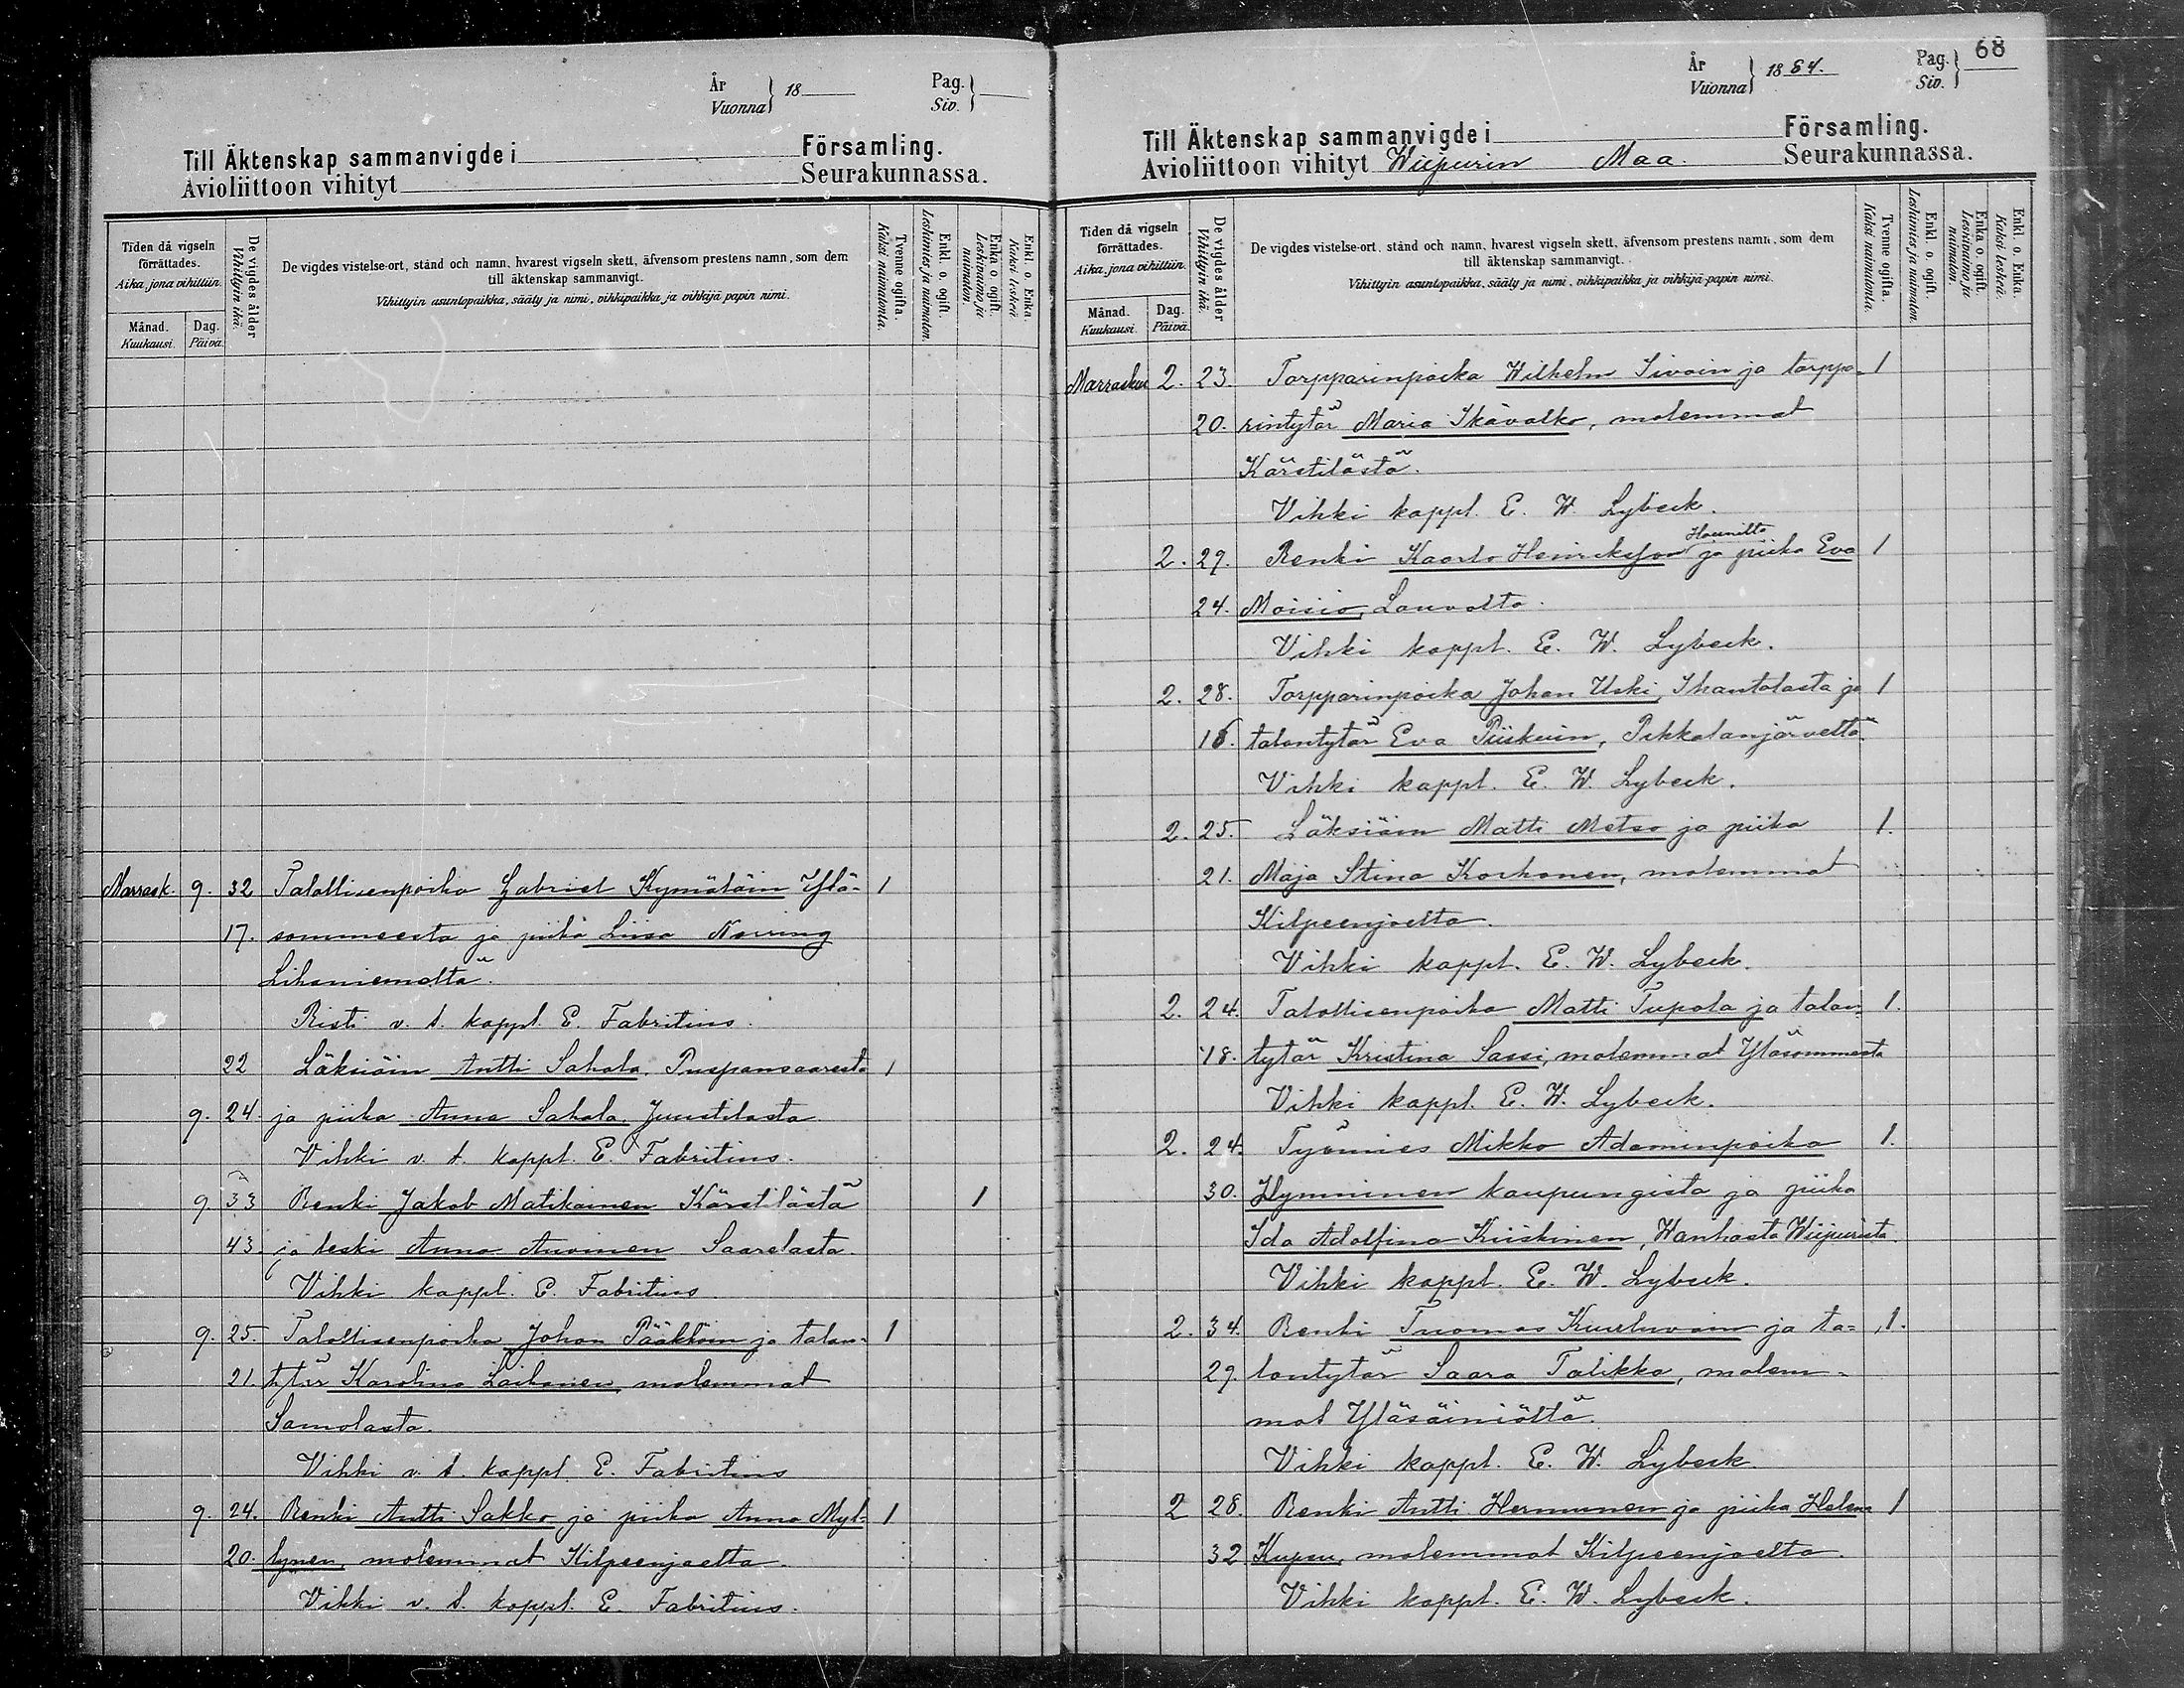 År
Vuonna } 18
Pag.
Siv. }
Till Äktenskap sammanvigde i Församling.
Avioliittoon vihityt Seurakunnassa.
Tiden då vigseln förrättades.
Aika, jona vihittiin.
Månad.
Kuukausi.
Dag.
Päivä.
De vigdes ålder
Vihittyin ikä.
De vigdes vistelse-ort, stånd och namn, hvarest vigseln skett, äfvensom prestens namn, som dem
till äktenskap sammanvigt.
Vihittyin asuntopaikka, sääty ja nimi, vihkipaikka ja vihkijä papin nimi.
Tvenne ogifta.
Kaksi naimatonta.
Enkl. o. ogift.
Leskimies ja naimaton.
Enka o. ogift.
Leskivaimo ja naimaton.
Enkl. o. Enka.
Kaksi leskeä
Marrask. 9. 32 Talollisenpoika Gabriel Kymäläin Ylä- 1
17. sommeesta ja piika Liisa Norring
Lihaniemeltä.
Risti v. t. kappl. E. Fabritius.
22 Läksiäin Antti Sahala, Puspansaaresta 1
9. 24. ja piika Anna Sahala, Juustilasta
Vihki v. t. kappl. E. Fabritius.
9. 33 Renki Jakob Matikainen Kärstilästä 1
43. ja leski Anna Anoinen Saarelasta.
Vihki kappl. E. Fabritius
9. 25. Talollisenpoika Johan Pääkköin ja talon- 1
21. tytär Karolina Laihanen, molemmat
Samolasta.
Vihki v. t. kappl. E. Fabritius
9. 24. Renki Antti Sakko ja piika Anna Myl- 1
20. lynen, molemmat Kilpeenjoelta.
Vihki v. t. kappl. E. Fabritius.
68
År
Vuonna } 1884.
Pag.
Siv. }
Till Äktenskap sammanvigde i Församling.
Avioliittoon vihityt Wiipurin Maa Seurakunnassa.
Tiden då vigseln förrättades.
Aika, jona vihittiin.
Månad.
Kuukausi.
Dag.
Päivä.
De vigdes ålder
Vihittyin ikä.
De vigdes vistelse-ort, stånd och namn, hvarest vigseln skett, äfvensom prestens namn, som dem
till äktenskap sammanvigt.
Vihittyin asuntopaikka, sääty ja nimi, vihkipaikka ja vihkijä papin nimi.
Tvenne ogifta.
Kaksi naimatonta.
Enkl. o. ogift.
Leskimies ja naimaton.
Enka o. ogift.
Leskivaimo ja naimaton.
Enkl. o. Enka.
Kaksi leskeä.
Marraskuu 2. 23. Torpparinpoika Wilhelm Sivoin ja torppa- 1
20. rintytär Maria Ikävalko, molemmat
Kärstilästä.
Vihki kappl. E. W. Lybeck.
Hounilta
2. 29. Renki Kaarlo Heinricksson ja piika Eva 1
24. Moisio, Lauvolta.
Vihki kappl. E. W. Lybeck.
2. 28. Torpparinpoika Johan Uski, Ihantolasta ja 1
18. talontytär Eva Piiskuin, Pikkalanjärveltä.
Vihki kappl. E. W. Lybeck.
2. 25. Läksiäin Matti Metso ja piika 1.
21. Maja Stina Korhonen, molemmat
Kilpeenjoelta.
Vihki kappl. E. W. Lybeck.
2. 24. Talollisenpoika Matti Tupola ja talon- 1.
18. tytär Kristina Sassi, molemmat Yläsommesta
Vihki kappl. E. W. Lybeck.
2. 24. Työmies Mikko Adaminpoika 1.
30. Hymninen kaupungista ja piika
Ida Adolfina Kiiskinen, Wanhasta Wiipurista.
Vihki kappl. E. W. Lybeck.
2. 34. Renki Tuomas Kuuluvain ja ta- 1.
29. lontytär Saara Talikka, molem-
mat Yläsäiniöltä.
Vihki kappl. E. W. Lybeck
2 28. Renki Antti Hermunen ja piika Helena 1
32 Kupsu, molemmat Kilpeenjoelta.
Vihki kappl. E. W. Lybeck.